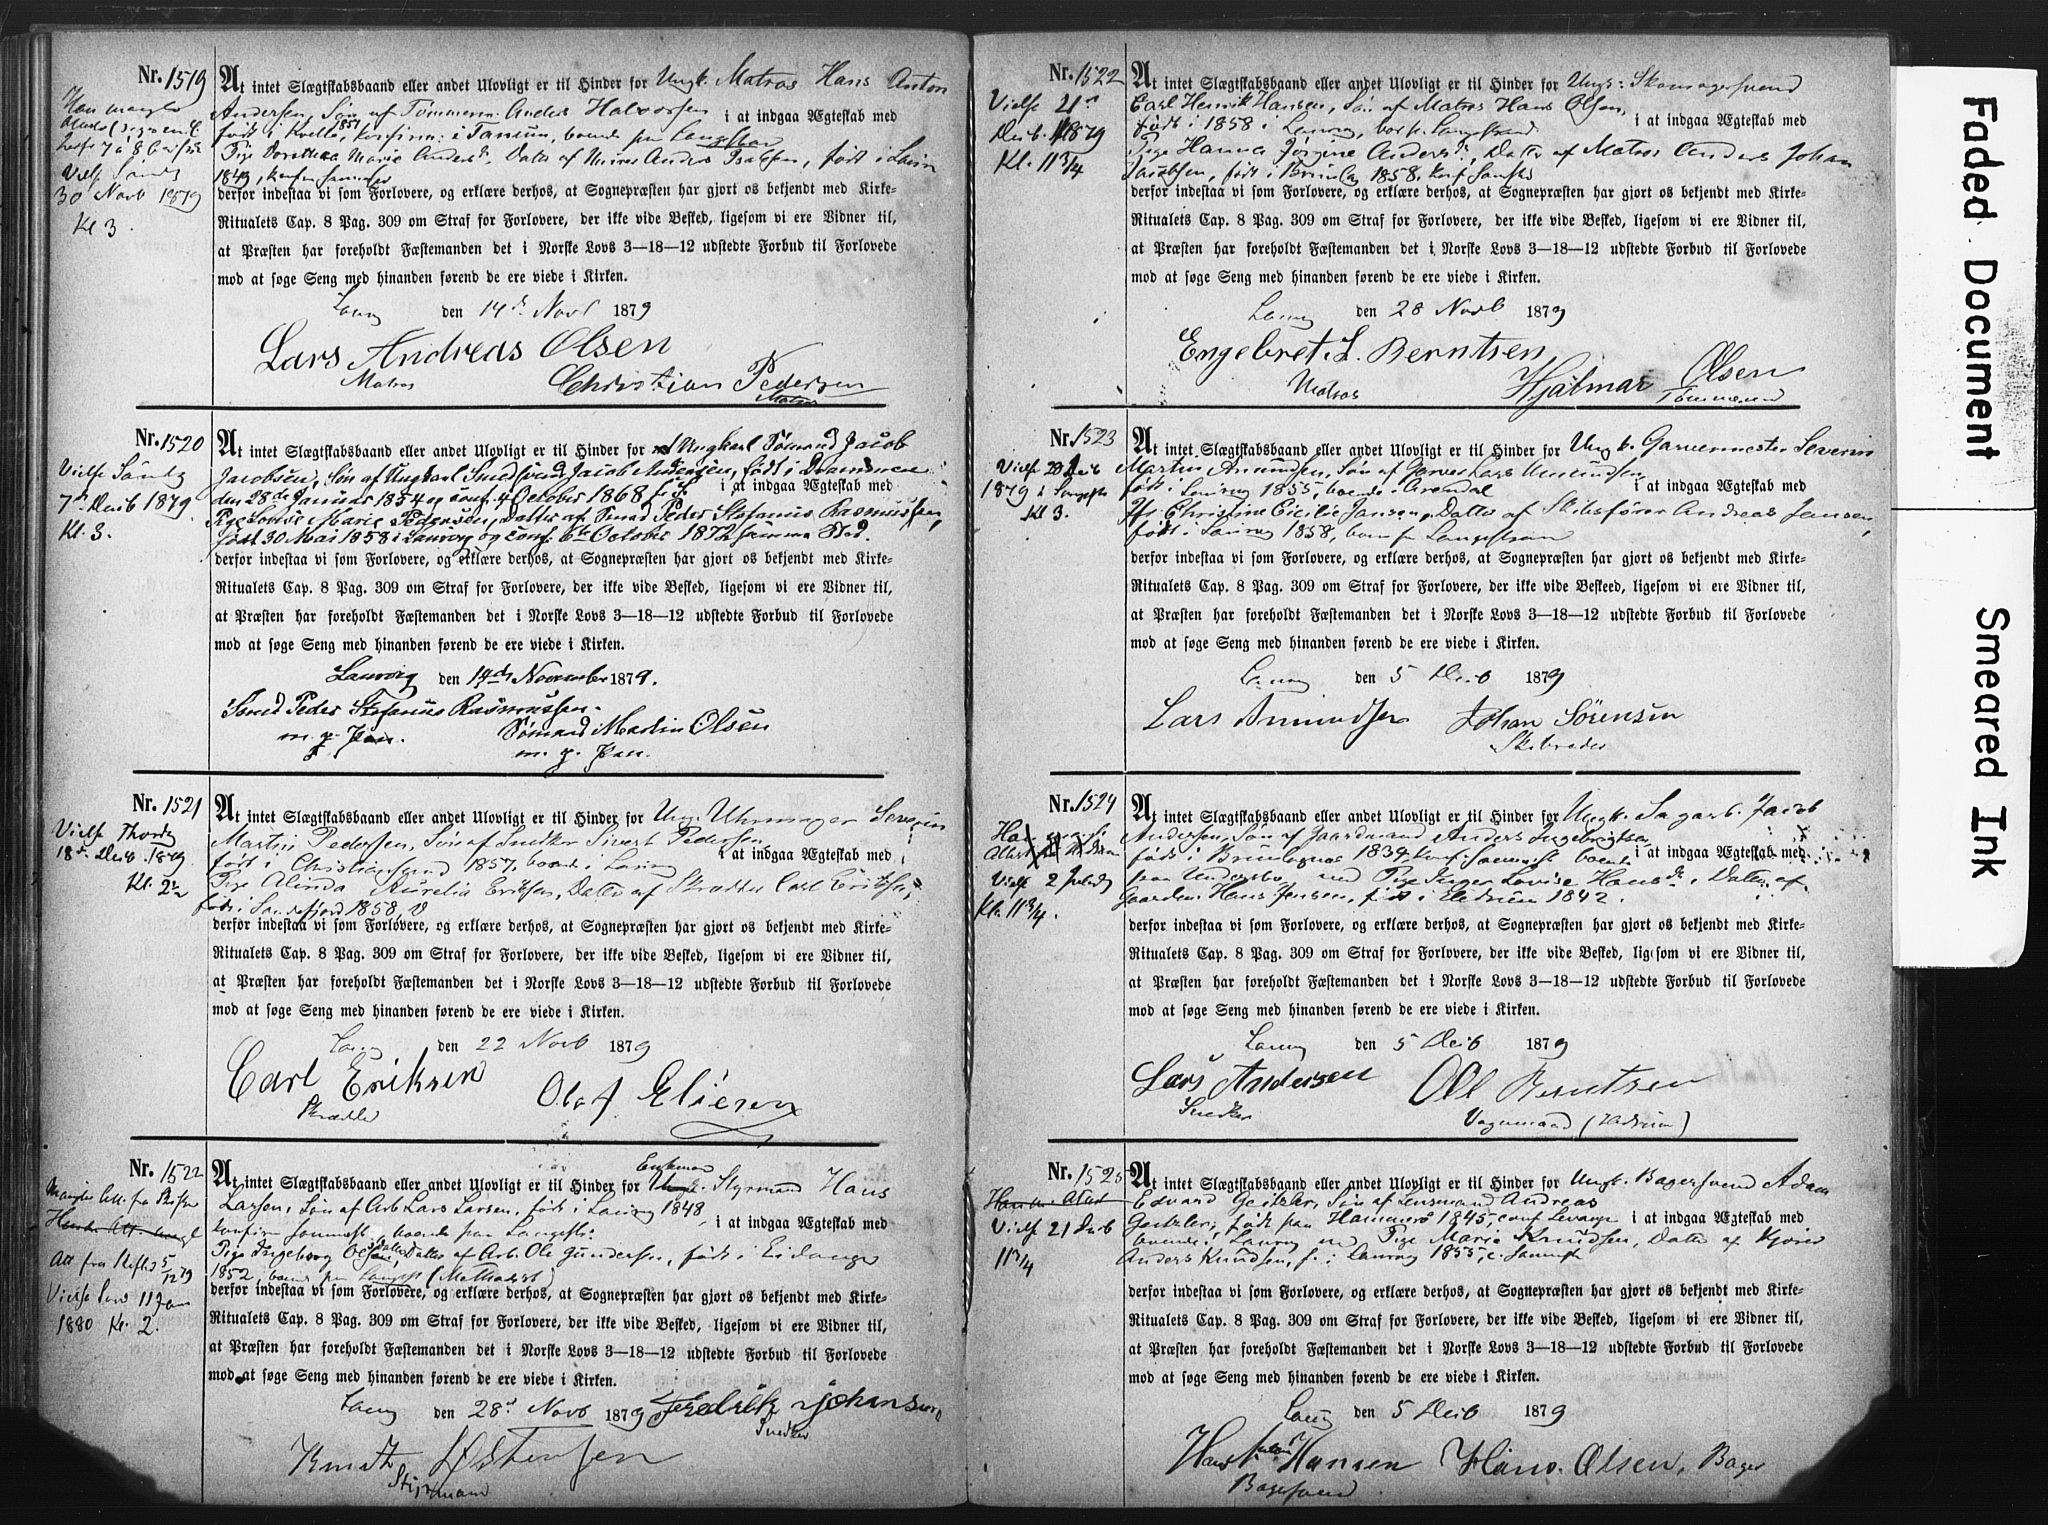 Nr. 1519
Vielse
30 Novb 1879
Kl 3.
At intet Slægtskabsbaand eller andet Ulovligt er til Hinder for Ungk. Matros Hans Anton
Andersen, Søn af Tømmerm. Anders Halvorsen
født i 1851, konfirm. i Tanum, boende paa i at indgaa Ægteskab med
Pige Dorothea Marie Datter af Anders født i
1849,
derfor indestaa vi som Forlovere, og erklære derhos, at Sognepræsten har gjort os bekjendt med Kirke-
Ritualets Cap. 8 Pag. 309 om Straf for Forlovere, der ikke vide Besked, ligesom vi ere Vidner til,
at Præsten har foreholdt Fæstemanden det i Norske Lovs 3—18—12 udstedte Forbud til Forlovede
mod at søge Seng med hinanden førend de ere viede i Kirken.
Laurv den 14de Novb 1879
Lars Andreas Olsen
Matros Christian Pedersen
Matros
Nr. 1520
Vielse Søndg
7de Decb 1879.
Kl. 3.
At intet Slægtskabsbaand eller andet Ulovligt er til Hinder for Ungkarl Sømand Jacob
Jacobsen, Søn af Ungkarl Smedsvend Jacob født i Drammen
den 28de Januar 1854 og conf. 4 Octobr 1868 i at indgaa Ægteskab med
Pige Lovise Marie Pedersen, Datter af Smed Peder Stefanus Rasmussen,
født 30 Mai 1858 i Laurvig og conf. 6te October 1872 samme Sted.
derfor indestaa vi som Forlovere, og erklære derhos, at Sognepræsten har gjort os bekjendt med Kirke-
Ritualets Cap. 8 Pag. 309 om Straf for Forlovere, der ikke vide Besked, ligesom vi ere Vidner til,
at Præsten har foreholdt Fæstemanden det i Norske Lovs 3—18—12 udstedte Forbud til Forlovede
mod at søge Seng med hinanden førend de ere viede i Kirken.
Laurvig den 14de November 1879.
Smed Peder Stefanus Rasmussen.
m. p. Pen. Sømand Martin Olsen
m. p. Pen.
Nr. 1521
Vielse Thorsdg
18de Decb 1879.
Kl. 2
At intet Slægtskabsbaand eller andet Ulovligt er til Hinder for Ungk. Uhrmager Severin
Martin Pedersen, Søn af Snedker Sivert Pedersen
født i Christiansund 1857, boende i Laurv i at indgaa Ægteskab med
Pige Alinda Aurelia Eriksen, Datter af Skrædder Carl Eriksen,
født i Sandefjord 1858,
derfor indestaa vi som Forlovere, og erklære derhos, at Sognepræsten har gjort os bekjendt med Kirke-
Ritualets Cap. 8 Pag. 309 om Straf for Forlovere, der ikke vide Besked, ligesom vi ere Vidner til,
at Præsten har foreholdt Fæstemanden det i Norske Lovs 3—18—12 udstedte Forbud til Forlovede
mod at søge Seng med hinanden førend de ere viede i Kirken.
Laurv den 22 Novb 1879
Carl Eriksen
Skrædder Olaf Eliesen
Nr. 1522
Mangler Att. fra Skifter
Att fra Skifter 5/12 79
Vielse 11 Jan
1880 Kl. 2.
Enkemand
At intet Slægtskabsbaand eller andet Ulovligt er til Hinder for Styrmand Hans
Larsen, Søn af Arb. Lars Larsen, født i Laurvig 1848,
konfirm. boende paa Langest. i at indgaa Ægteskab med
Pige Ingeborg Olsen, Datter af Arb. Ole Gundersen, født i Eidanger
1852, boende paa Langest (Methodist)
derfor indestaa vi som Forlovere, og erklære derhos, at Sognepræsten har gjort os bekjendt med Kirke-
Ritualets Cap. 8 Pag. 309 om Straf for Forlovere, der ikke vide Besked, ligesom vi ere Vidner til,
at Præsten har foreholdt Fæstemanden det i Norske Lovs 3—18—12 udstedte Forbud til Forlovede
mod at søge Seng med hinanden førend de ere viede i Kirken.
Laurv den 28de Novb 1879 Fredrik Johansen
Snedker
Knudt Østensen
Styrmand
Nr. 1522
Vielse 21de
Decb. 1879
Kl. 11 3/4
At intet Slægtskabsbaand eller andet Ulovligt er til Hinder for Ungk. Skomagersvend
Carl Henrik Hansen, Søn af Matros Hans Olsen,
født i 1858 i Laurvig, i at indgaa Ægteskab med
Pige Hanna Jørgine Andersd., Datter af Matros Anders Johan
Jacobsen, født i Brunla 1858,
derfor indestaa vi som Forlovere, og erklære derhos, at Sognepræsten har gjort os bekjendt med Kirke-
Ritualets Cap. 8 Pag. 309 om Straf for Forlovere, der ikke vide Besked, ligesom vi ere Vidner til,
at Præsten har foreholdt Fæstemanden det i Norske Lovs 3—18—12 udstedte Forbud til Forlovede
mod at søge Seng med hinanden førend de ere viede i Kirken.
Laurv den 28 Novb 1879
Engebret L. Berntsen
Matros Hjalmar Olsen
Tømmermand
Nr. 1523
Vielse Decb
1879
Kl 3.
At intet Slægtskabsbaand eller andet Ulovligt er til Hinder for Ungk. Garvermester Severin
Martin Amundsen, Søn af Garver Lars Amundsen,
født i Laurvig 1855, boende i Arendal i at indgaa Ægteskab med
Christine Cicilie Jansen, Datter af Skibsfører Andreas Jansen,
født i Laurvig 1858,
derfor indestaa vi som Forlovere, og erklære derhos, at Sognepræsten har gjort os bekjendt med Kirke-
Ritualets Cap. 8 Pag. 309 om Straf for Forlovere, der ikke vide Besked, ligesom vi ere Vidner til,
at Præsten har foreholdt Fæstemanden det i Norske Lovs 3—18—12 udstedte Forbud til Forlovede
mod at søge Seng med hinanden førend de ere viede i Kirken.
Laurv den 5 Decb 1879
Lars Amundsen Johan Sørensen
Skibsreder
Nr. 1524
Vielse 2 Juledg
Kl. 11 3/4
At intet Slægtskabsbaand eller andet Ulovligt er til Hinder for Ungk. Sagarb. Jacob
Andersen, Søn af Gaardmand Anders Ingebrigtsen
født i Brunlagnæs 1834, konf. boende i at indgaa Ægteskab med
paa Undersbo med Pige Inger Lovise Hansd., Datter af
Gaardm. Hans Jensen, født i Hedrum 1842.
derfor indestaa vi som Forlovere, og erklære derhos, at Sognepræsten har gjort os bekjendt med Kirke-
Ritualets Cap. 8 Pag. 309 om Straf for Forlovere, der ikke vide Besked, ligesom vi ere Vidner til,
at Præsten har foreholdt Fæstemanden det i Norske Lovs 3—18—12 udstedte Forbud til Forlovede
mod at søge Seng med hinanden førend de ere viede i Kirken.
Laurv den 5 Decb 1879
Lars Andersen Ole Berntsen
Snedker Vognmand (Hedrum)
Nr. 1525
Vielse 21 Decb
11 3/4
At intet Slægtskabsbaand eller andet Ulovligt er til Hinder for Ungk. Bagersvend Adam
Edvard Søn af Lensmand Andreas
født paa Hammerø 1845, conf. Levanger i at indgaa Ægteskab med
boende i Laurvig med Pige Marie Knudsen, Datter af
Anders Knudsen, f. i Laurvig 1855,
derfor indestaa vi som Forlovere, og erklære derhos, at Sognepræsten har gjort os bekjendt med Kirke-
Ritualets Cap. 8 Pag. 309 om Straf for Forlovere, der ikke vide Besked, ligesom vi ere Vidner til,
at Præsten har foreholdt Fæstemanden det i Norske Lovs 3—18—12 udstedte Forbud til Forlovede
mod at søge Seng med hinanden førend de ere viede i Kirken.
Laurv den 5 Decb 1879
Hans Hansen Hans Olsen, Bager
Bagersvend.
Faded Document
Smeared Ink